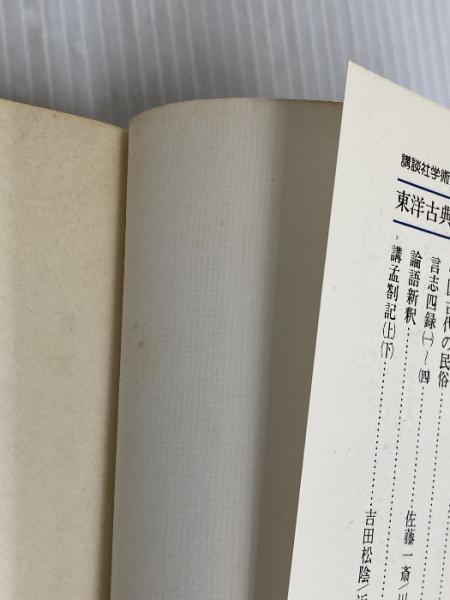 講談社学術
東洋古典
古代の民俗
言志四録㈠～㈣……佐藤一斎/川
論語新釈……
講孟劄記㈤㈦……吉田松陰/近